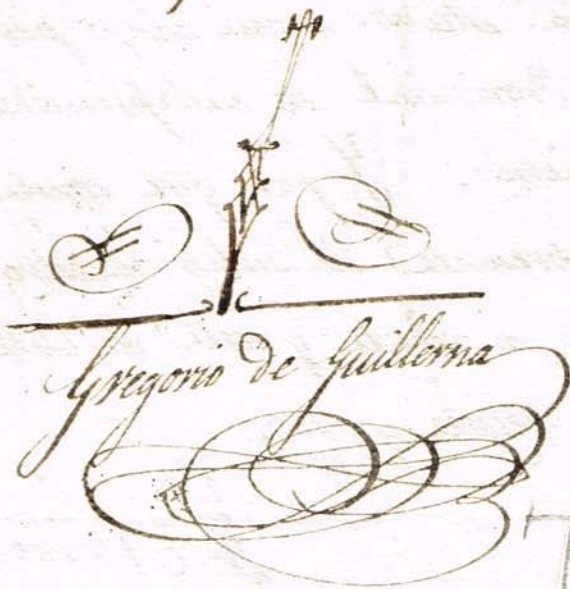 Gregorio de Guillerma